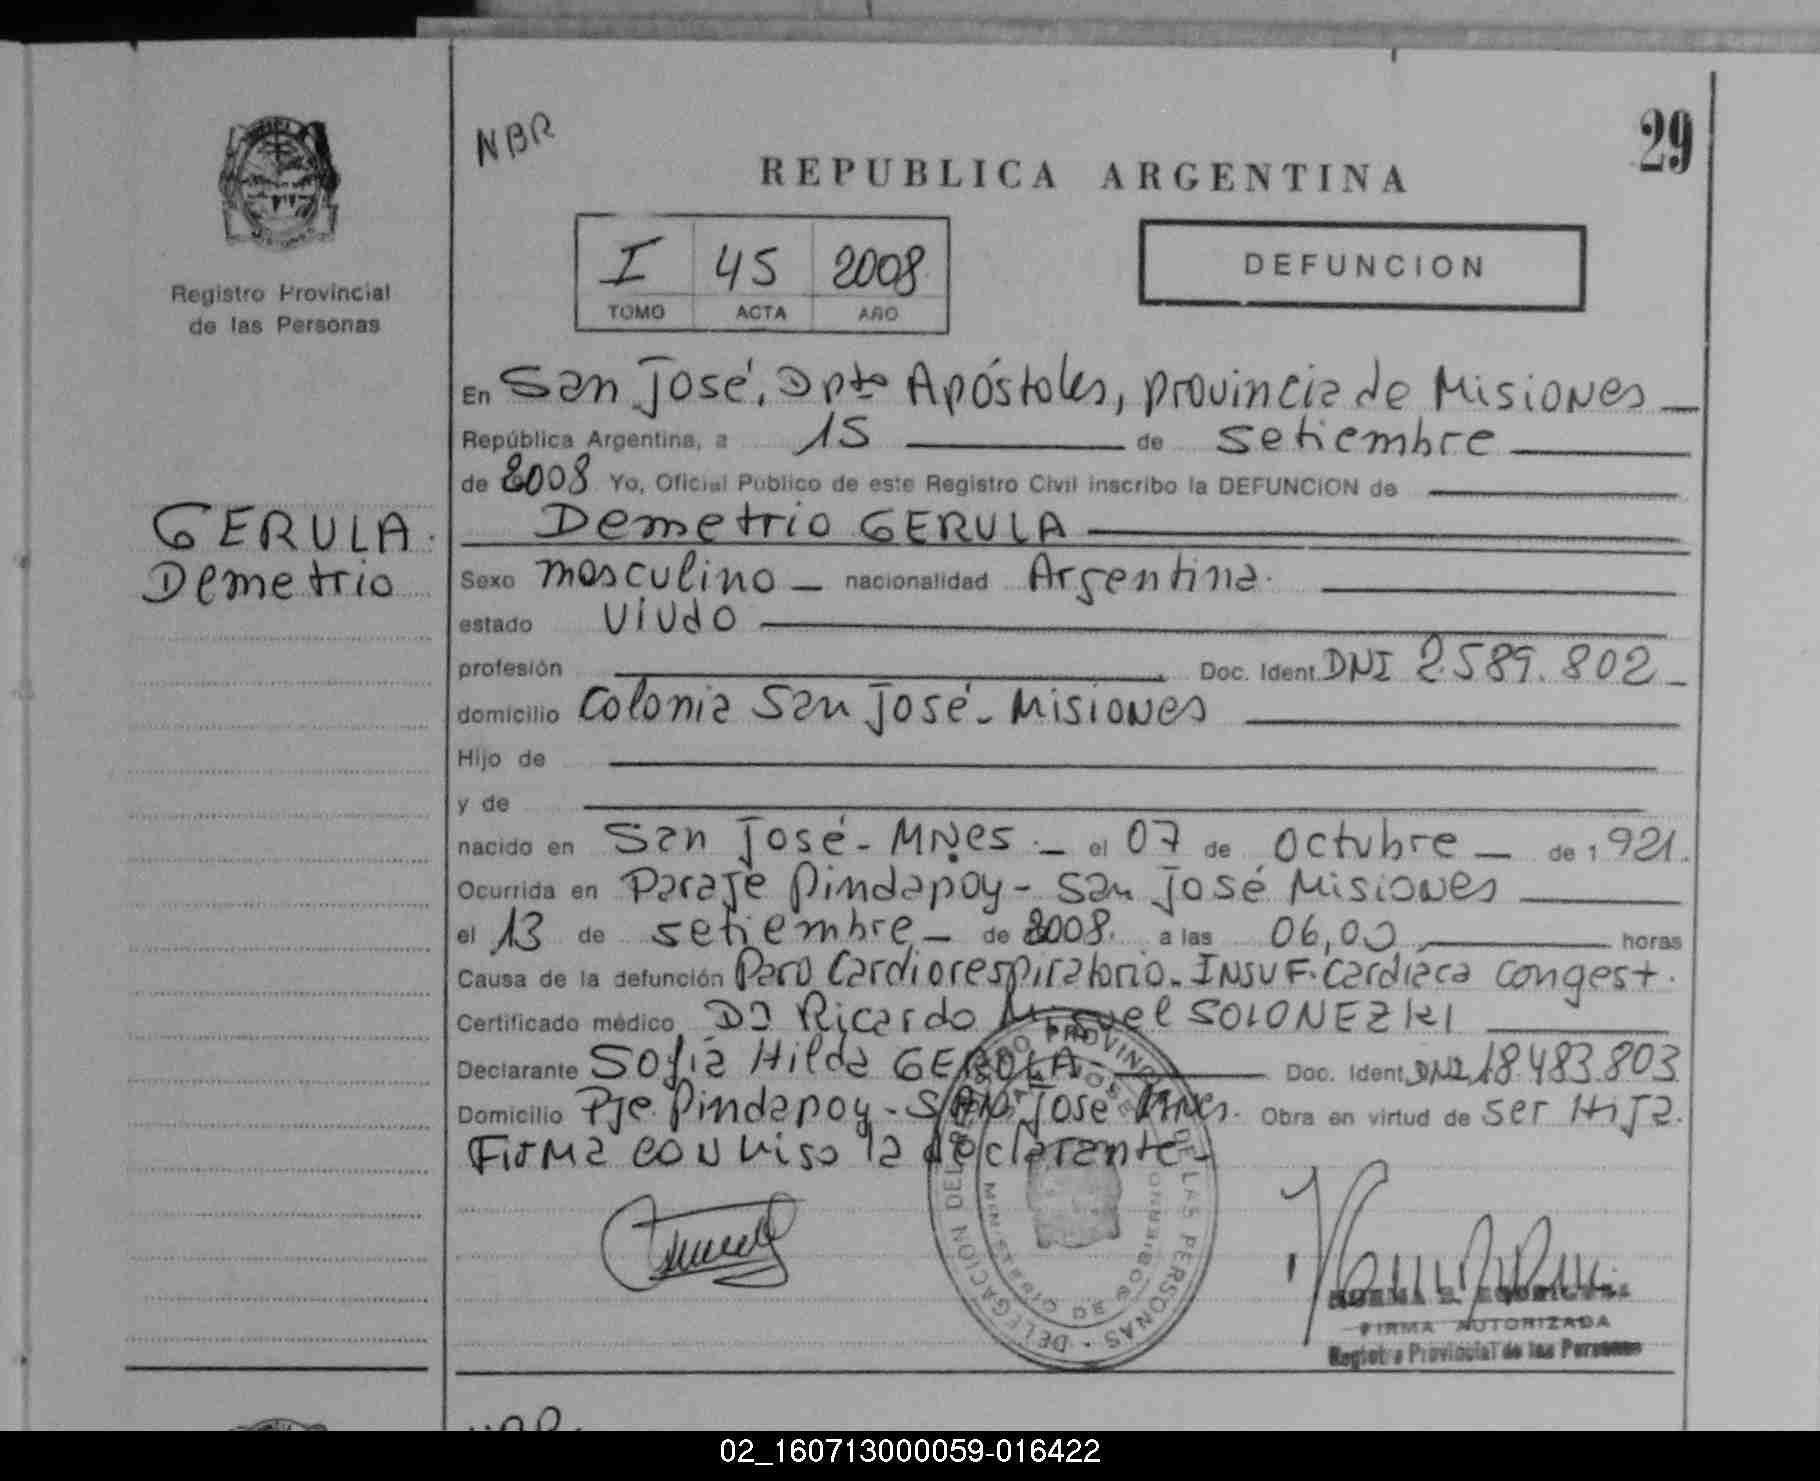 NBR
29
REPUBLICA ARGENTINA
I 45 2008
TOMO ACTA AÑO
DEFUNCION
Registro Provincial
de las Personas
GERULA.
Demetrio
En San José, Dpto Apóstoles, provincia de Misiones
República Argentina, a 15 de setiembre
de 2008 Yo, Oficial Público de este Registro Civil inscribo la DEFUNCION de
Demetrio GERULA
Sexo masculino nacionalidad Argentina.
estado viudo
profesión Doc. Ident. DNI 2589.802
domicilio Colonia San José - Misiones
Hijo de
y de
nacido en San José - MNes. el 07 de octubre de 1921.
Ocurrida en Paraje Pindapoy - San José Misiones
el 13 de setiembre de 2008. a las 06,00 horas
Causa de la defunción Paro Cardiorespiratorio - INSUF. Cardíaca Congest.
Certificado médico Ricardo Miguel SOLONEZKI
Declarante Sofia Hilda GEROLA Doc. Ident. DNI 18.483.803
Domicilio Pje. Pindapoy - San José Mnes. Obra en virtud de ser Hija.
Firma la declarante -
DELEGACION DEL REGISTRO PROVINCIAL DE LAS PERSONAS
SAN JOSE
MINISTERIO DE GOBIERNO
FIRMA AUTORIZADA
Registro Provincial de las Personas
02_160713000059-016422